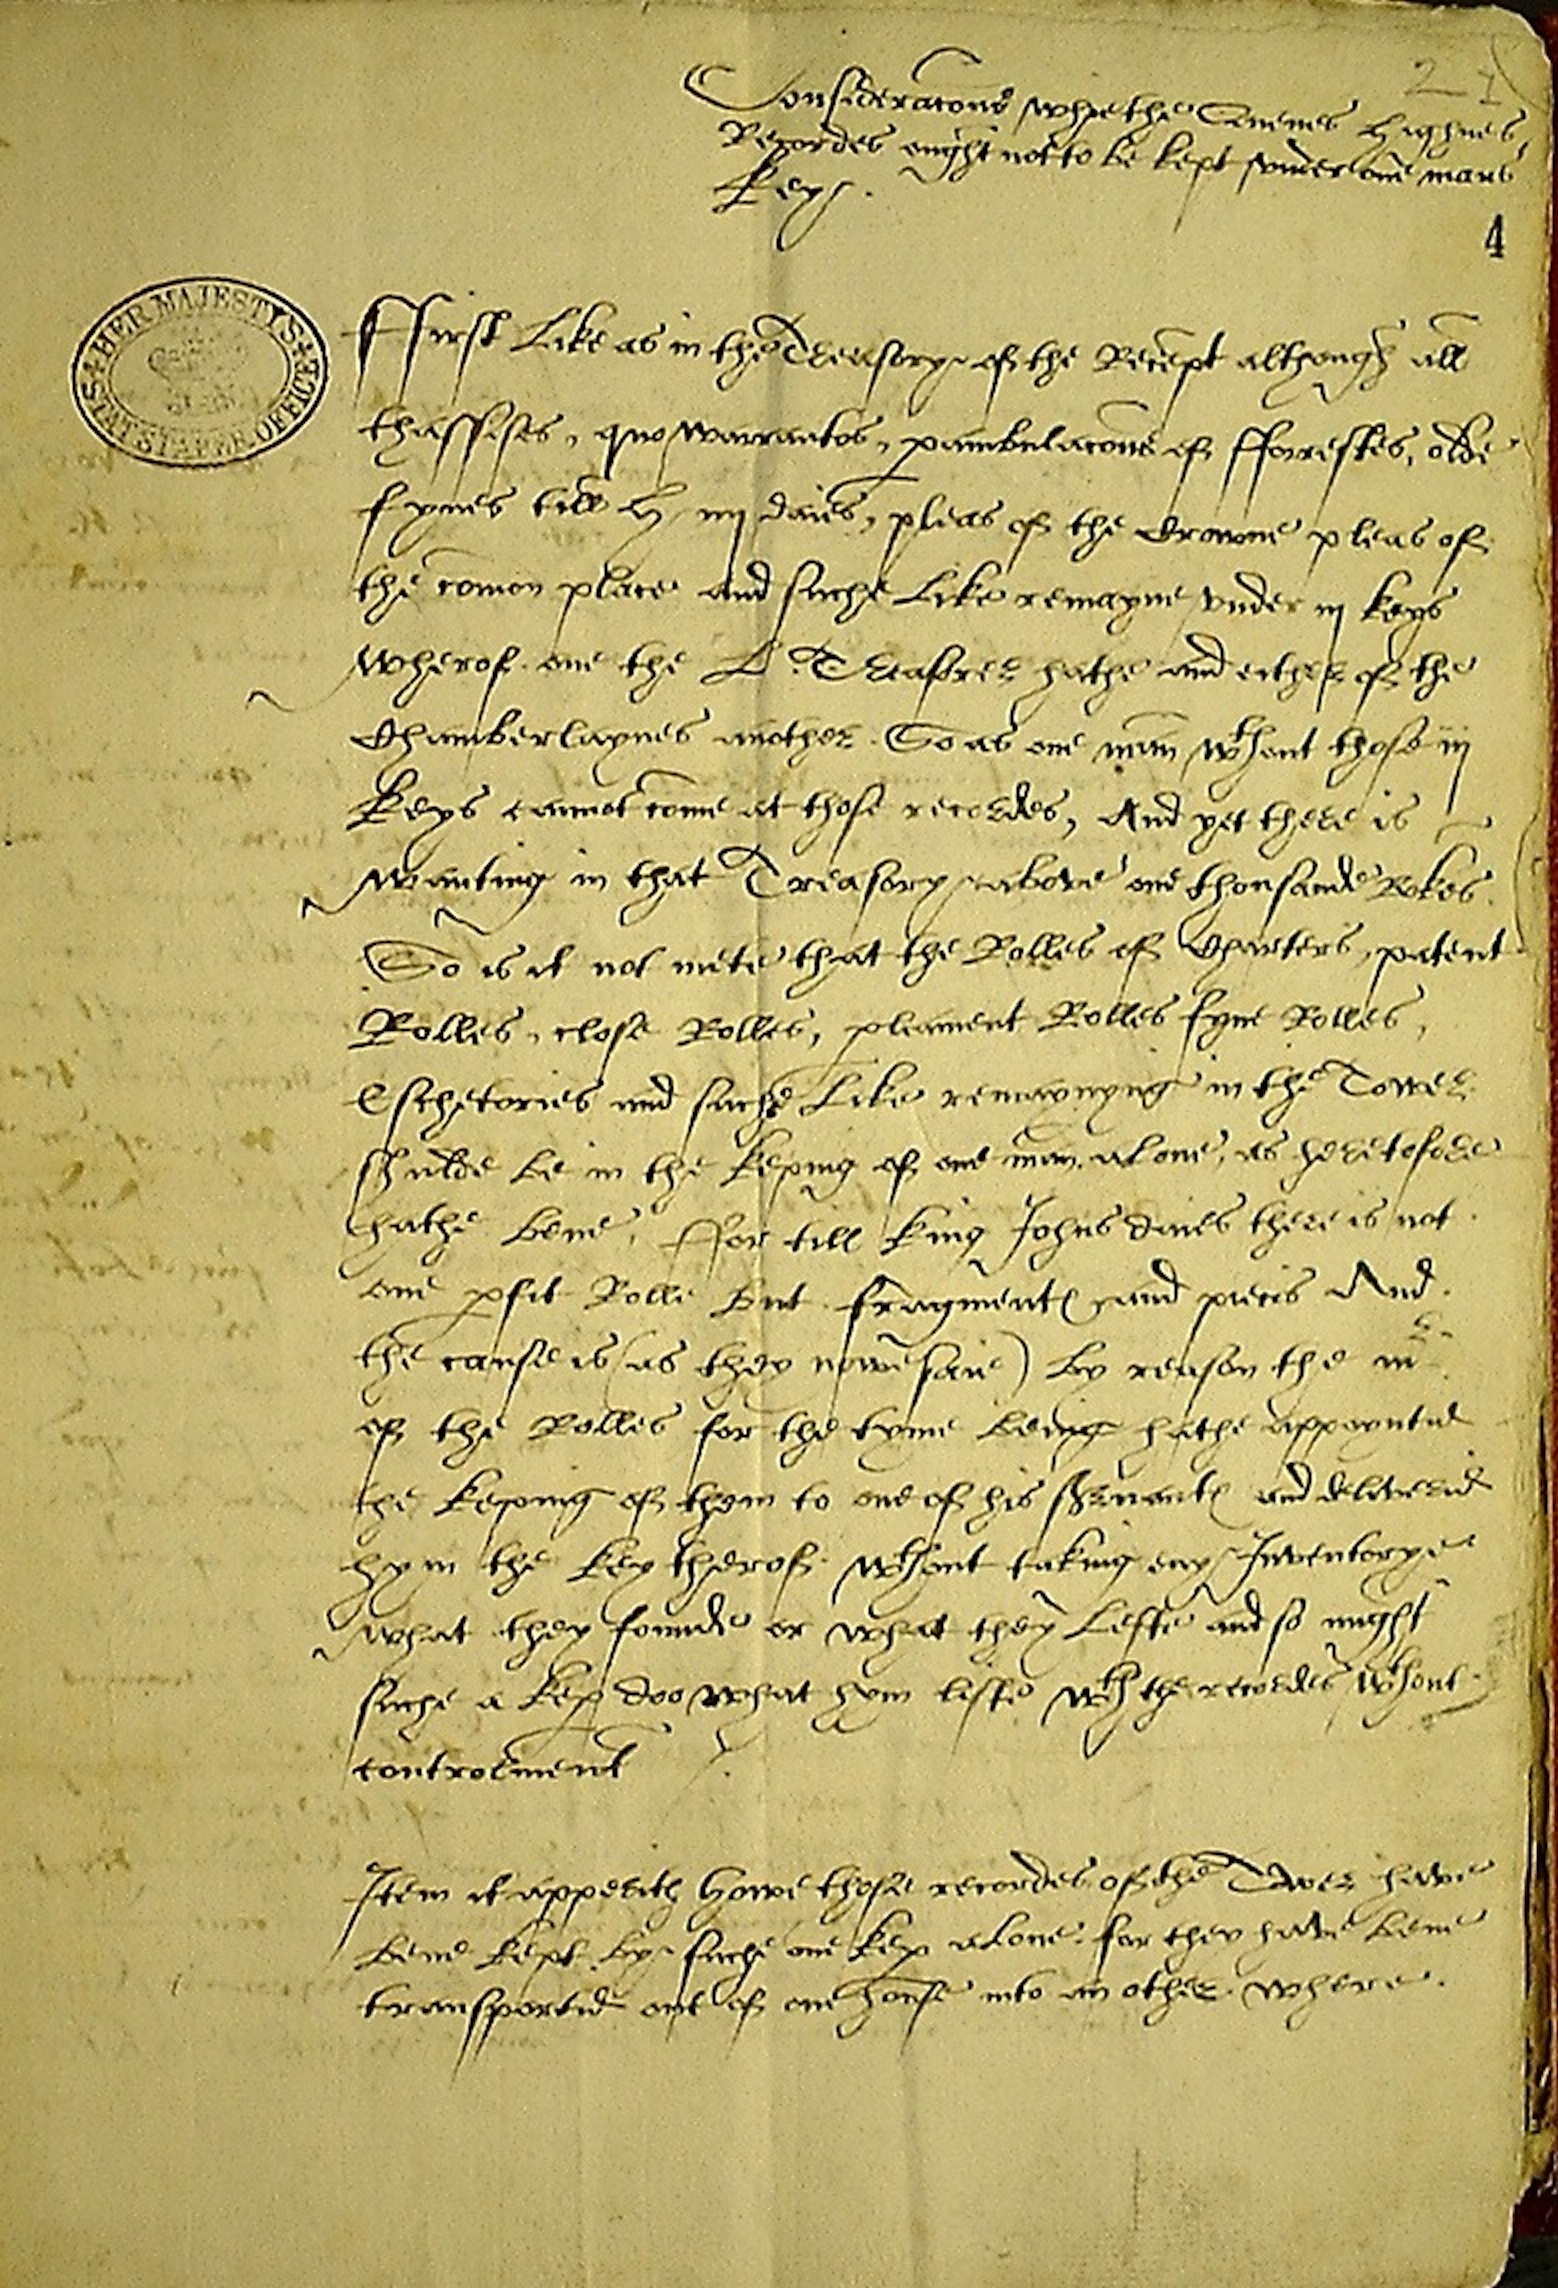 21
Consideracons whie the Quenes Highnes
Recordes ought not to be kept vnder one mans
Key.
4
HER MAJESTY'S STATE PAPER OFFICE
First Like as in the Treasory of the Receipt although all
thassises, quo warrantos, pambulacons of fforestes, olde
fynes till H iiij daies, pleas of the Crowne pleas of
the comon place and suche Like remayne vnder iij keys
wherof one the L. Treasorer hathe and either of the
Chamberlaynes another. So as one man wthout those iij
keys cannot come at those recordes, And yet there is
wanting in that Treasory above one thousande Rolles.
So is it not mete that the Rolles of Charters, patent
Rolles, close Rolles, pliament Rolles fyne Rolles,
Eschetories and suche Like remaynyng in the Tower
shulde be in the keping of one man alone, as heretofore
hathe bene, ffor till king Johns daies there is not
one pfit Rolle but fragmentes and pieces And
the cause is (as they nowe saie) by reason the mr
of the Rolles for the tyme being hathe appoyntid
the keping of them to one of his seruantes and deliverid
hym the key therof wthout taking eny Inventorye
what they founde or what they Lefte and so might
suche a kep doo what hym liste wth the recordes wthout
controlment
Item it apperith howe those recordes of the Tower have
bene kept by suche one kep alone. for they have bene
transportid out of one house into an other where.